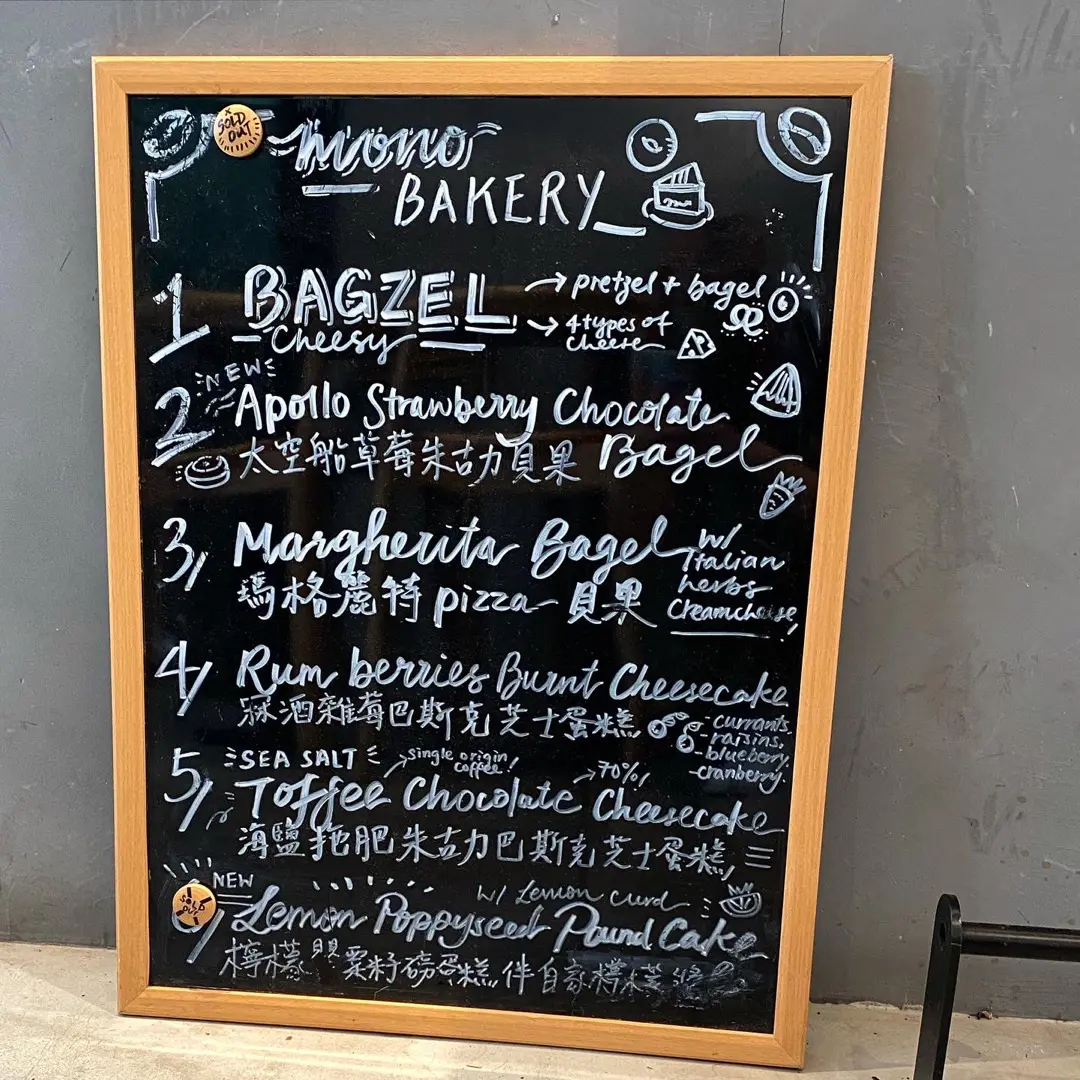 SOLD OUT
mono
BAKERY
1 BAGZEL → pretzel + bagel
Cheesy → 4 types of cheese
NEW
2 Apollo Strawberry Chocolate
太空船草莓朱古力貝果 Bagel
3, Margherita Bagel w/ Italian herbs creamcheese,
瑪格麗特 pizza 貝果
4, Rum berries Burnt Cheesecake
冧酒雜莓巴斯克芝士蛋糕
- currants,
- raisins,
- blueberry,
- cranberry.
SEA SALT → single origin coffee! → 70%,
5, Toffee Chocolate Cheesecake
海鹽拖肥朱古力巴斯克芝士蛋糕,
NEW w/ Lemon curd
SOLD OUT
Lemon Poppyseed Pound Cake
檸檬罌粟籽磅蛋糕伴自家檸檬